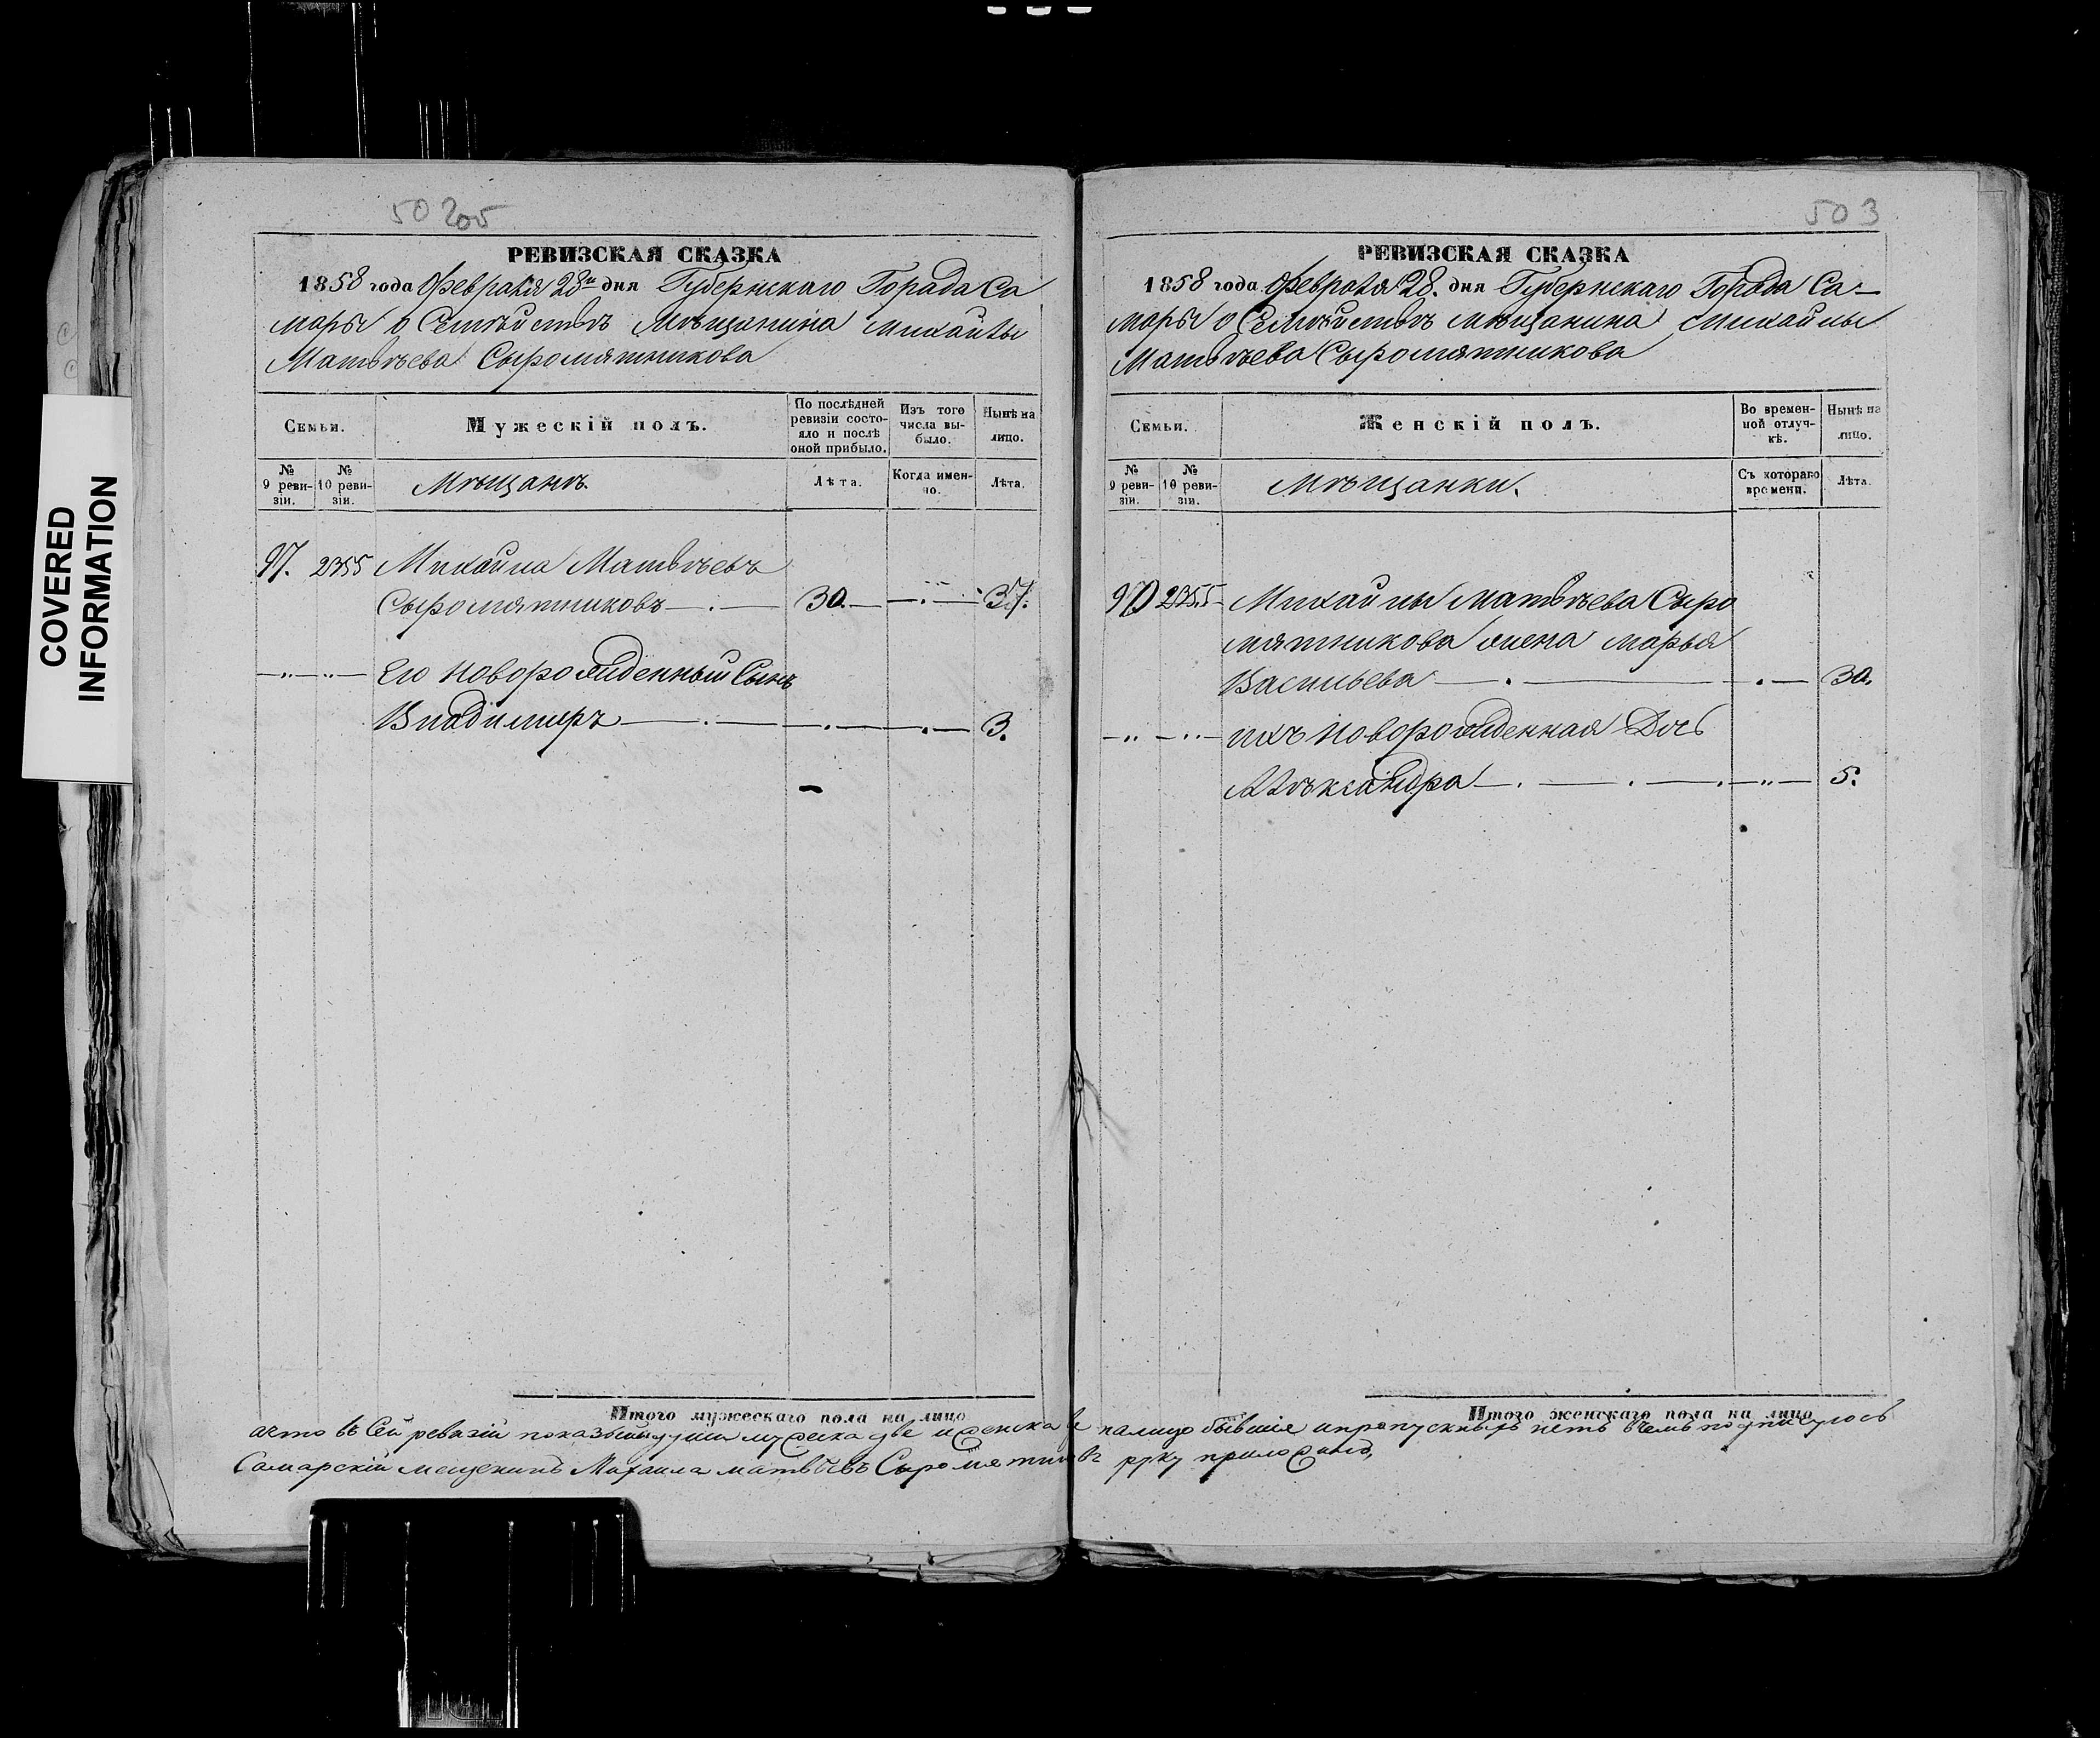 COVERED
INFORMATION
50 205
РЕВИЗСКАЯ СКАЗКА
1858 года Февраля 28го дня Губернскаго Города Са
мары о Семѣйствѣ Мѣщанина Михайлы
Матвѣева Сыромятникова
Семьи.
Мужескій полъ.
По послѣдней
ревизіи состо-
яло и послѣ
оной прибыло.
Изъ того
числа вы-
было.
Нынѣ на
лицо.
№
9 реви-
зіи.
№
10 реви-
зіи.
Мѣщанъ.
Лѣта.
Когда имен-
но.
Лѣта.
97. 2355 Михайла Матвѣевъ
Сыромятниковъ 30. 37.
Его новорожденный Сынъ
Владимиръ 3.
Итого мужескаго пола на лицо
503
РЕВИЗСКАЯ СКАЗКА
1858 года Февраля 28. дня Губернскаго Города Са-
мары о Семѣйствѣ мѣщанина Михайлы
Матвѣева Сыромятникова
Семьи.
Женскій полъ.
Во времен-
ной отлуч-
кѣ.
Нынѣ на
лицо.
№
9 реви-
зіи.
№
10 реви-
зіи.
Мѣщанки.
Съ котораго
времени.
Лѣта.
97 2355 Михайлы Матвѣева Сыро
мятникова жена марья
Васильева 30.
ихъ новорожденная Дочь
Алѣксандра 5.
Итого женскаго пола на лицо
ачто въ Сей ревизій показаный души мужска две иженска две налицо бывшіе ипропускныхъ нетъ вчемъ подписуюсь
Самарскій мещенинъ Михаила матвѣевъ Сыромятниковъ руку приложилъ,